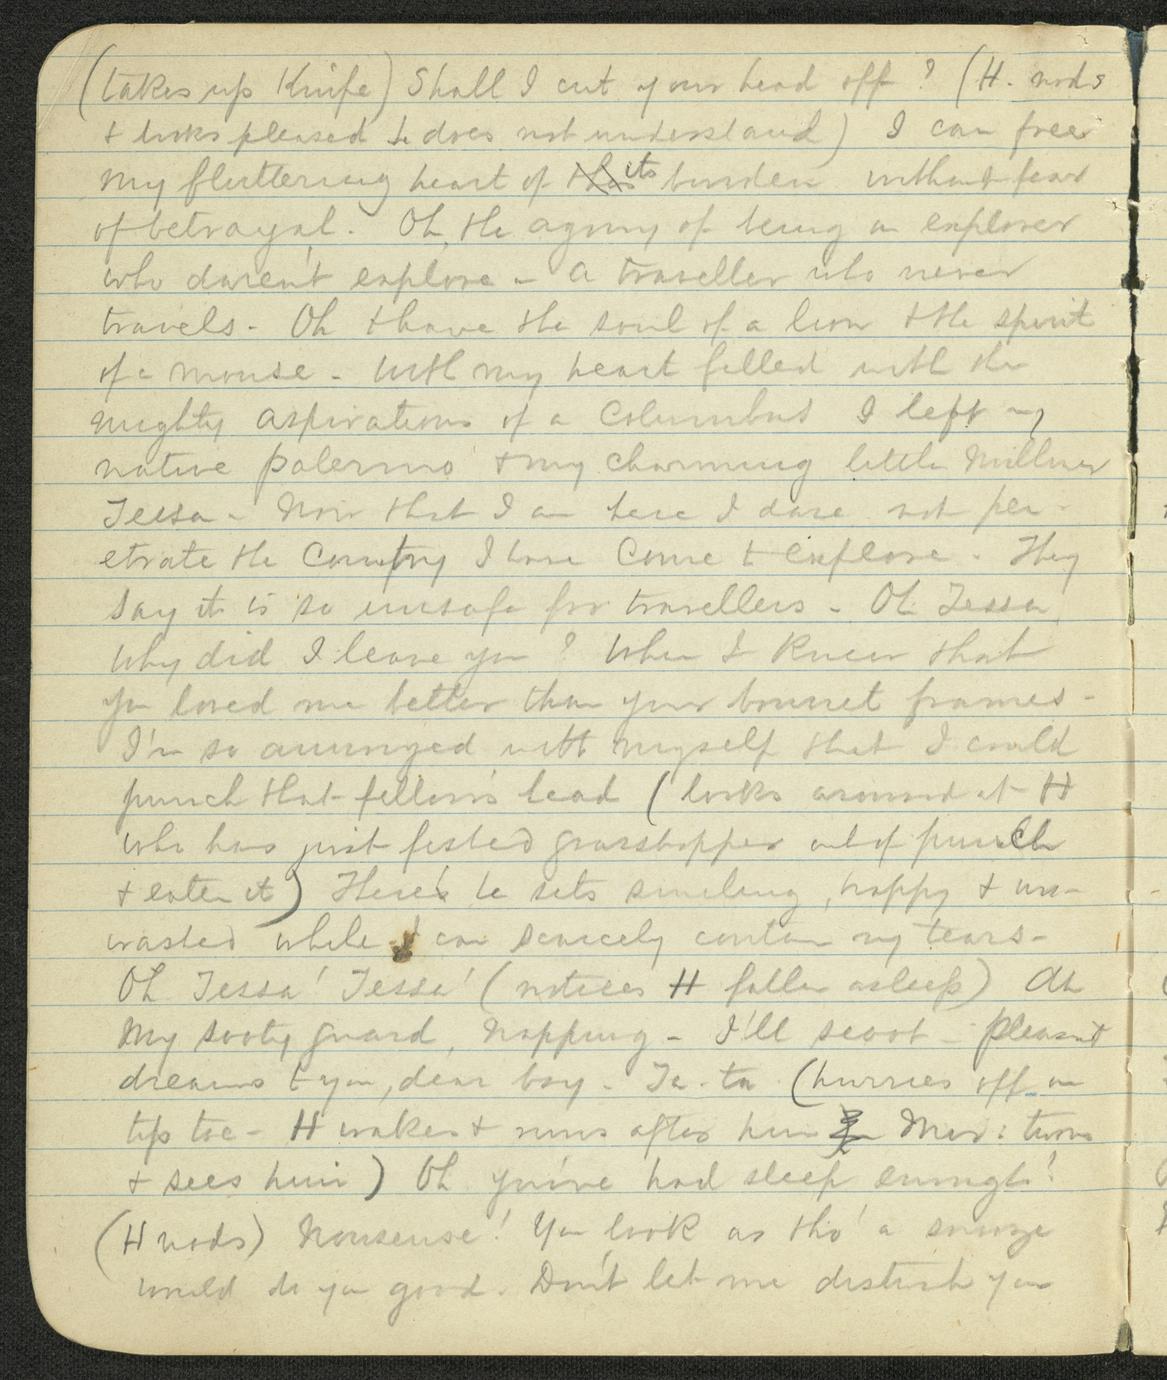 (takes up Knife) Shall I cut your head off? (H. nods
& looks pleased he does not understand) I can free
my fluttering heart of its burden without fear
of betrayal. Oh, the agony of being an explorer
who daren't explore - a traveller who never
travels - Oh to have the soul of a lion & the spirit
of a mouse - With my heart filled with the
mighty aspirations of a Columbus I left my
native Palermo & my charming little Milliner
Tessa - Now that I am here I dare not pen-
etrate the Country I have come to explore - They
say it is so unsafe for travellers - Oh Tessa
Why did I leave you? When I knew that
you loved me better than your bonnet frames -
I'm so annoyed with myself that I could
punch that fellow's head (looks around at H
who has just fished grasshopper out of punch
& eaten it) Here's he sits smiling, happy & un-
washed while I can scarcely contain my tears -
Oh Tessa! Tessa! (notices H fallen asleep) Ah
My sooty guard, napping - I'll scoot - pleasant
dreams to you, dear boy - Ta-ta (hurries off on
tip toe - H wakes & runs after him Mar: turns
& sees him) Oh you've had sleep enough!
(H nods) Nonsense! You look as tho' a snooze
would do you good. Don't let me disturb you